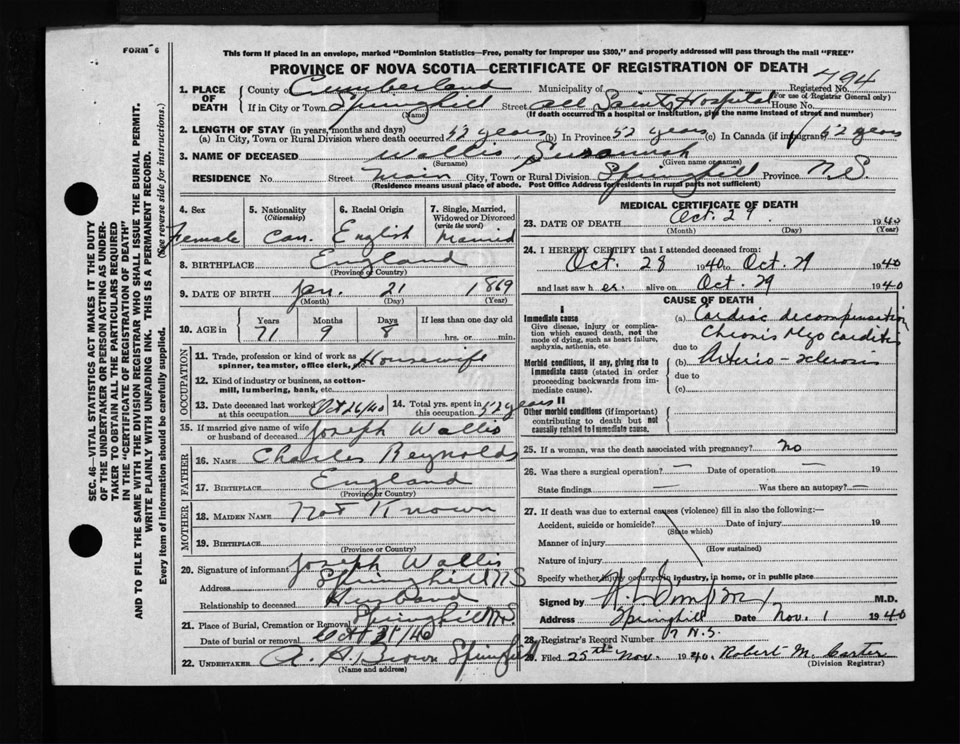 FORM 6
This form if placed in an envelope, marked "Dominion Statistics—Free, penalty for improper use $300," and properly addressed will pass through the mail "FREE"
PROVINCE OF NOVA SCOTIA—CERTIFICATE OF REGISTRATION OF DEATH
SEC. 46—VITAL STATISTICS ACT MAKES IT THE DUTY
OF THE UNDERTAKER OR PERSON ACTING AS UNDER-
TAKER TO OBTAIN ALL THE PARTICULARS REQUIRED
IN THE "CERTIFICATE OF REGISTRATION OF DEATH"
AND TO FILE THE SAME WITH THE DIVISION REGISTRAR WHO SHALL ISSUE THE BURIAL PERMIT.
WRITE PLAINLY WITH UNFADING INK. THIS IS A PERMANENT RECORD.
Every item of information should be carefully supplied. (See reverse side for instructions.)
1. PLACE OF DEATH
County of Cumberland Municipality of Registered No. 794
(For use of Registrar General only)
If in City or Town Springhill Street All Saints Hospital House No.
(Name) (If death occurred in a hospital or institution, give the name instead of street and number)
2. LENGTH OF STAY (in years, months and days)
(a) In City, Town or Rural Division where death occurred 52 years (b) In Province 52 years (c) In Canada (if immigrant) 52 years
3. NAME OF DECEASED Wallis, Susannah
(Surname) (Given name or names)
RESIDENCE No. Street Main City, Town or Rural Division Springhill Province N.S.
(Residence means usual place of abode. Post Office Address for residents in rural parts not sufficient)
4. Sex 5. Nationality (Citizenship) 6. Racial Origin 7. Single, Married, Widowed or Divorced (write the word)
Female Can. English Married
8. BIRTHPLACE England
(Province or Country)
9. DATE OF BIRTH Jan. 21 1869
(Month) (Day) (Year)
10. AGE in Years Months Days If less than one day old
71 9 8 hrs. or min.
OCCUPATION
11. Trade, profession or kind of work as spinner, teamster, office clerk, Housewife
12. Kind of industry or business, as cotton-mill, lumbering, bank, etc.
13. Date deceased last worked at this occupation Oct 26/40 14. Total yrs. spent in this occupation 52 years
15. If married give name of wife or husband of deceased Joseph Wallis
FATHER
16. NAME Charles Reynolds
17. BIRTHPLACE England
(Province or Country)
MOTHER
18. MAIDEN NAME Not Known
19. BIRTHPLACE
(Province or Country)
20. Signature of informant Joseph Wallis
Address Springhill N.S.
Relationship to deceased Husband
21. Place of Burial, Cremation or Removal Springhill N.S.
Date of burial or removal Oct 31/40
22. UNDERTAKER A. A. Brown Springhill
(Name and address)
MEDICAL CERTIFICATE OF DEATH
23. DATE OF DEATH Oct. 29 1940
(Month) (Day) (Year)
24. I HEREBY CERTIFY that I attended deceased from:
Oct. 28 1940 to Oct. 29 1940
and last saw her alive on Oct. 29 1940
CAUSE OF DEATH
I
Immediate cause
Give disease, injury or complication which caused death, not the mode of dying, such as heart failure, asphyxia, asthenia, etc.
(a) Cardiac decompensation
Chronic Myocarditis
due to
Morbid conditions, if any, giving rise to immediate cause (stated in order proceeding backwards from immediate cause).
(b) Arterio-sclerosis
due to
(c)
II
Other morbid conditions (if important) contributing to death but not causally related to immediate cause.
25. If a woman, was the death associated with pregnancy? no
26. Was there a surgical operation? — Date of operation — 19
State findings Was there an autopsy? —
27. If death was due to external causes (violence) fill in also the following:—
Accident, suicide or homicide? Date of injury 19
(State which)
Manner of injury
(How sustained)
Nature of injury
Specify whether injury occurred in industry, in home, or in public place
Signed by M.D.
Address Springhill N.S. Date Nov. 1 1940
28. Registrar's Record Number
29. Filed 25th Nov. 1940. Robert M. Carter
(Division Registrar)